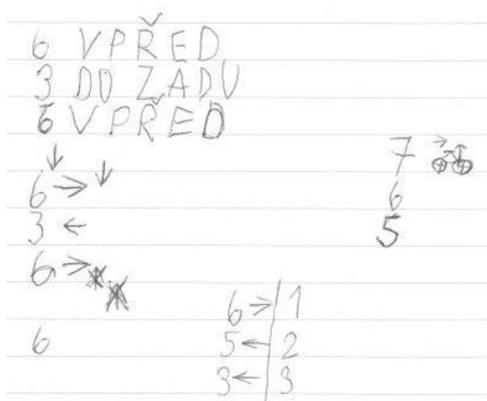 6 VPŘED
3 DO ZADU
6 VPŘED
↓
6 → ↓
3 ←
6 →
6
7 →
6
5
6 → 1
5 ← 2
3 ← 3